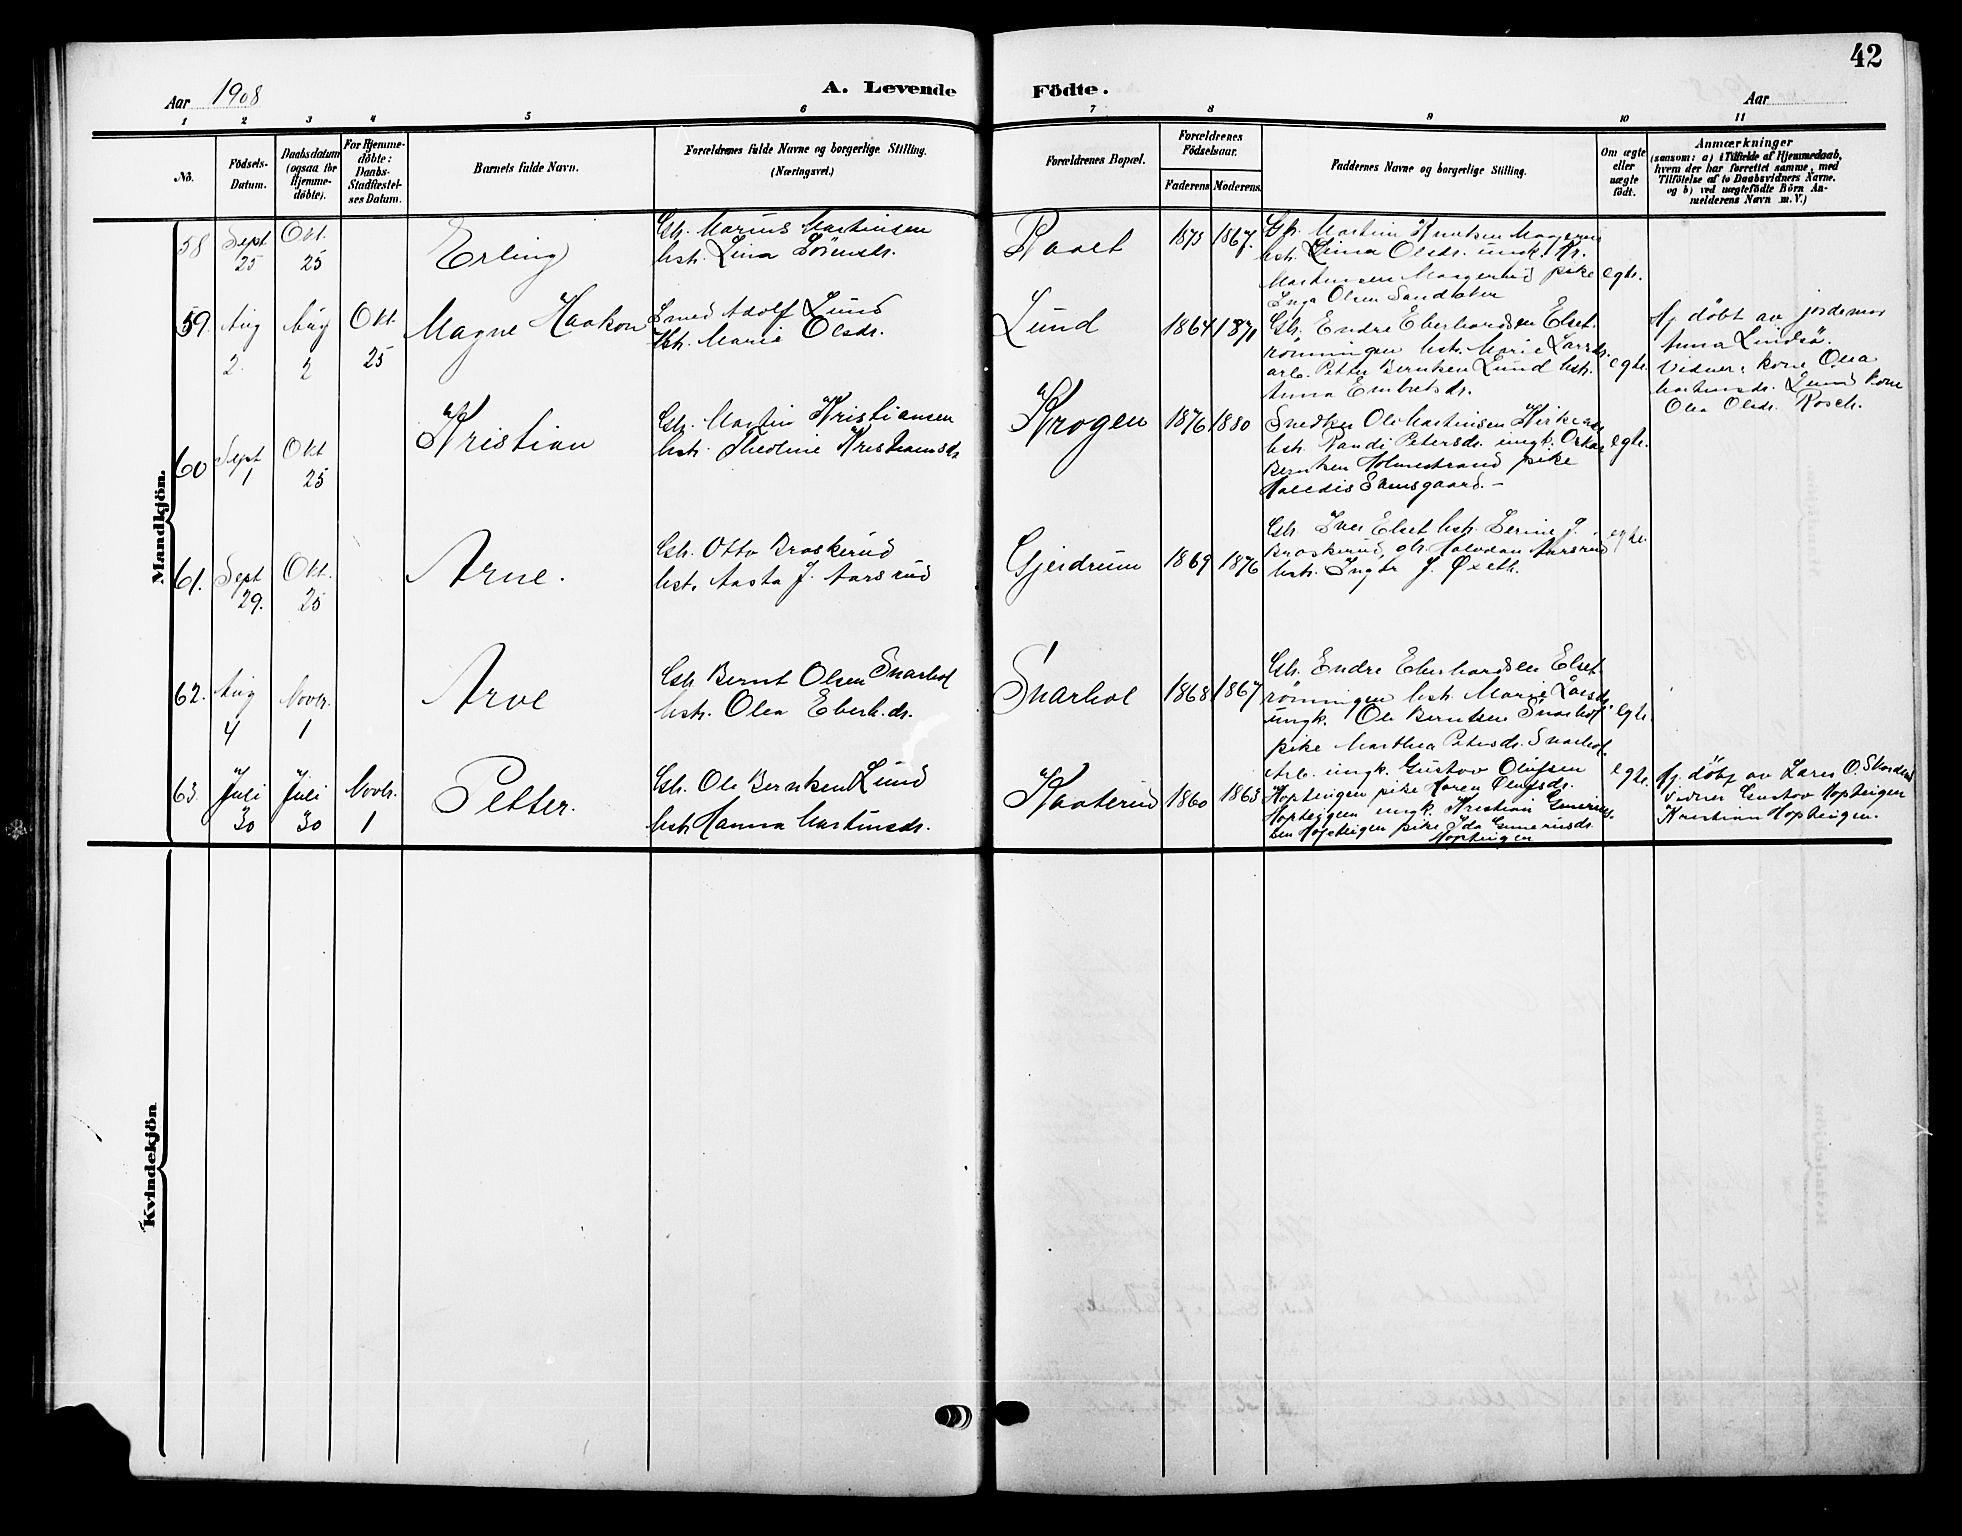 42
Aar 1908
A. Levende Födte.
Aar
1 2 3 4 5 6 7 8 9 10 11
No.
Födsels-
Datum.
Daabsdatum
(ogsaa for
Hjemme-
døbte).
For Hjemme-
döbte:
Daabs-
Stadfæstel-
ses Datum.
Barnets fulde Navn.
Forældrenes fulde Navne og borgerlige Stilling.
(Næringsvei.)
Forældrenes Bopæl.
Forældrenes
Födselsaar.
Faderens Moderens
Faddernes Navne og borgerlige Stilling.
Om ægte
eller
uægte
födt.
Anmærkninger
(saasom: a) i Tilfælde af Hjemmedaab,
hvem der har forrettet samme, med
Tilföielse af to Daabsvidners Navne,
og b) ved uægtefödte Börn An-
melderens Navn m. V.)
Mandkjön.
58
Sept
25
Okt.
25
Erling
Gbr. Marius Martinsen
hstr. Lina Sörensdr.
1873 1867.
Gbr. Martin Knutsen
hstr. Lina Olsdr. ungk.
Martinsen pike
Inga Olsen
egte.
59.
Aug
2.
Aug
2
Okt.
25
Magne Haakon
Smed Adolf Lund
Hstr. Marie Olsdr.
Lund
1864 1871
Gbr. Endre Eberhardsen Elset-
rönningen hstr. Marie Larsdr.
arb. Petter Berntsen Lund hstr.
Anna Embretsdr.
egte.
Hj. döbt av jordemor
Anna Lindsö.
Vidner: kone Olea
Martinsdr. Lund kone
Olea Olsdr. Rosch.
60
Sept
1
Okt
25
Kristian
Gbr. Martin Kristiansen
hstr. Theoline Kristiansdr
Krogen
1876 1880
Snedker Ole Martinsen
hstr. Randi Petersdr. ungk. Oskar
Berntsen Holmestrand pike
Samsgaard. –
egte.
61.
Sept
29.
Okt.
25
Arne.
Gbr. Otto Braskerud
hst. Aasta J. Aarsrud
Gjeidrum
1869 1876
Gbr Iver Elset hstr. Lerine J.
Braskerud, gbr. Halvdan Aarsrud
hstr. Inga J. Øxeth.
egte.
62.
Aug
4
Novbr.
1
Arve
Gbr Bernt Olsen Snarhol
hstr. Olea Eberh.dr.
Snarhol
1868 1867
Gbr. Endre Eberhardsen Elset-
rönningen hstr. Marie Larsdr.
ungk. Ole Berntsen Snarhol
pike Marthea Petersdr. Snarhol
egte.
63.
Juli
30
Juli
30
Novbr.
1
Petter.
Gbr. Ole Berntsen Lund
hstr Hanna Martinsdr.
Kaaterud
1860 1863
Arb. ungk. Gustav Olufsen
Hopteigen pike Karen Olufsdr.
Hopteigen ungk. Kristian Gunerius-
sen Hopteigen pike Ida Guneriusdr.
Hopteigen
egte.
Hj. döbt av Lars O.
Vidner Gustav Hopteigen
Kristian Hopteigen.
Kvindekjön